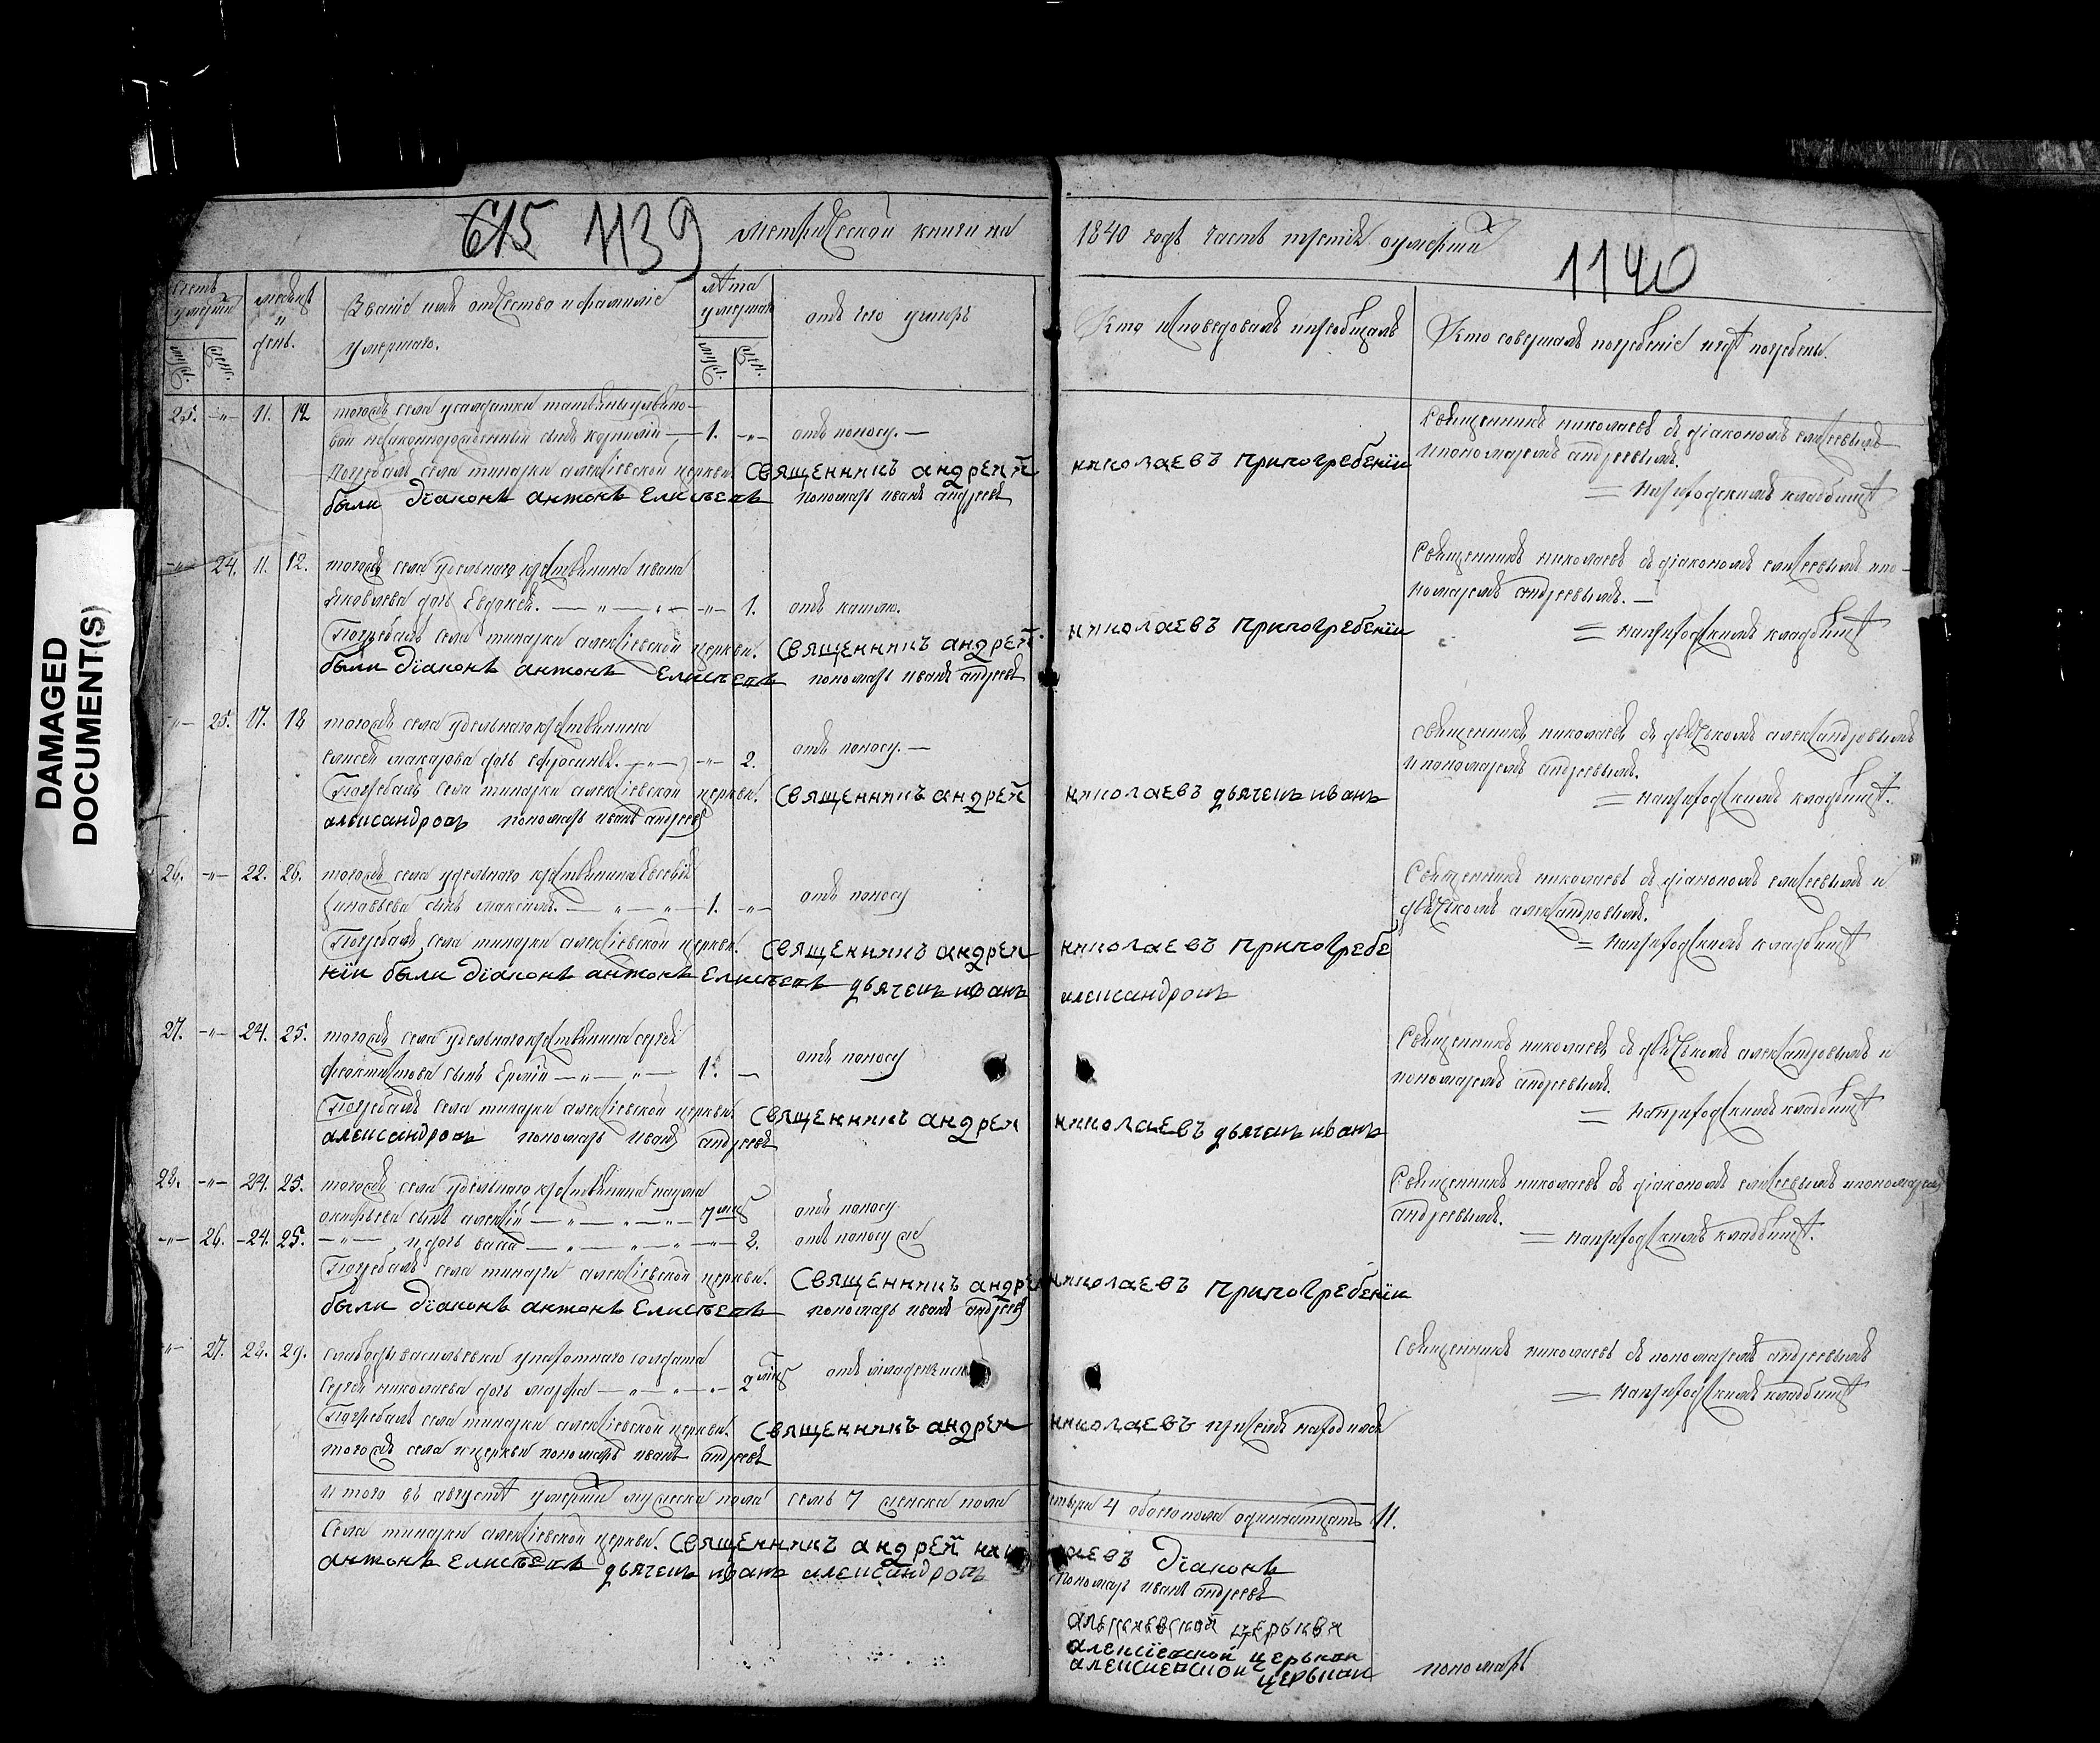 DAMAGED
DOCUMENT(S)
615 1139 Метрической книги на 1840 годъ часть третія о умершихъ
1140
Счетъ умершихъ
муж.
женс.
месяцъ и день.
Званіе имя отчество и фамиліе умершаго.
лѣта умершаго
муж.
жен.
отъ чего умеръ
Кто исповедовалъ и приобщалъ
Кто совершалъ погребеніе и гдѣ погребены.
25. -"- 11. 12
тогожъ села
незаконнорожденный сынъ 1. -"- отъ поносу. —
Погребалъ села тинарки алексіевской церкви. Священникъ андрей николаевъ припогребеніи
были діаконъ антонъ Елисѣевъ пономарь иванъ андреевъ
Священникъ николаевъ съ діакономъ елисеевымъ
и пономаремъ андреевымъ.
= на приходскимъ кладбищѣ
-"- 24. 11. 12. тогожъ села удельнаго крестьянина ивана
Яковлева дочь Евдокея. — " — " — -"- 1. отъ кашлю.
Погребалъ села тинарки алексіевской церкви. Священникъ андрей николаевъ припогребеніи
были діаконъ антонъ Елисѣевъ пономарь иванъ андреевъ
Священникъ николаевъ съ діакономъ елисеевымъ и по-
номаремъ андреевымъ. —
= на приходскимъ кладбищѣ
-"- 25. 17. 18 тогожъ села удельнаго крестьянина
елисея макарова дочь ефросинья. -"- -"- 2. отъ поносу. —
Погребалъ села тинарки алексіевской церкви. Священникъ андрей николаевъ дьячекъ иванъ
александровъ пономарь иванъ андреевъ
Священникъ николаевъ съ дьячкомъ александровымъ
и пономаремъ андреевымъ.
= на приходскимъ кладбищѣ.
26. -"- 22. 26. тогожъ села удельнаго крестьянина Евсевія
Зиновьева сынъ максимъ. — " — " — 1. -"- отъ поносу
Погребалъ села тинарки алексіевской церкви. Священникъ андрей николаевъ припогребе
ніи были діаконъ антонъ Елисѣевъ дьячекъ иванъ александровъ
Священникъ николаевъ съ діакономъ елисеевымъ и
дьячкомъ александровымъ.
= на приходскимъ кладбищѣ
27. -"- 24. 25. тогожъ села удельнаго крестьянина сергея
феоктистова сынъ Ермій — " — " — 1. — отъ поносу
Погребалъ села тинарки алексіевской церкви. Священникъ андрей николаевъ дьячекъ иванъ
александровъ пономарь иванъ андреевъ
Священникъ николаевъ съ дьячкомъ александровымъ и
пономаремъ андреевымъ.
= на приходскимъ кладбищѣ
28. -"- 24. 25. тогожъ села удельнаго крестьянина наума
сынъ алексій — " — " — " — 7 мѣс отъ поносу
-"- 26. -24. 25. — " — и дочь васса — " — " — " — 2. отъ поносу же
Погребалъ села тинарки алексіевской церкви. Священникъ андрей николаевъ припогребеніи
были діаконъ антонъ Елисѣевъ пономарь иванъ андреевъ
Священникъ николаевъ съ діакономъ елисеевымъ и пономаремъ
андреевымъ.
= на приходскимъ кладбищѣ.
-"- 27. 28. 29. слабоды васильевки солдата
Сергея николаева дочь марфа — " — " — " — 2 мѣс отъ младенческ
Погребалъ села тинарки алексіевской церкви. Священникъ андрей николаевъ присемъ находился
тогожъ села и церкви пономарь иванъ андреевъ
Священникъ николаевъ съ пономаремъ андреевымъ
= на приходскимъ кладбищѣ
Итого въ августѣ умерши мужеска пола семь 7 женска пола четыри 4 обоего пола одинатцать 11.
Села тинарки алексіевской церкви. Священникъ андрей николаевъ Діаконъ
антонъ Елисѣевъ дьячекъ иванъ александровъ пономарь иванъ андреевъ
алексіевской церькви
алексіевской церькви
алексиевской церькви
пономарь